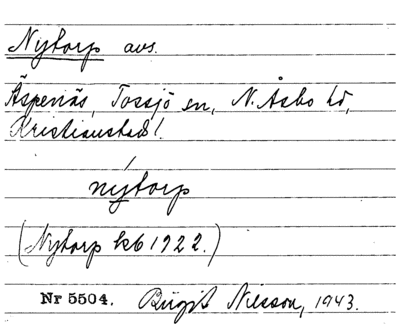 Nytorp avs.
Äspenäs, Tossjö sn, N. Åsbo hd,
Kristianstads l.
nýtorp
(Nytorp kb 1922.)
Nr 5504. Birgit Nilsson, 1943.